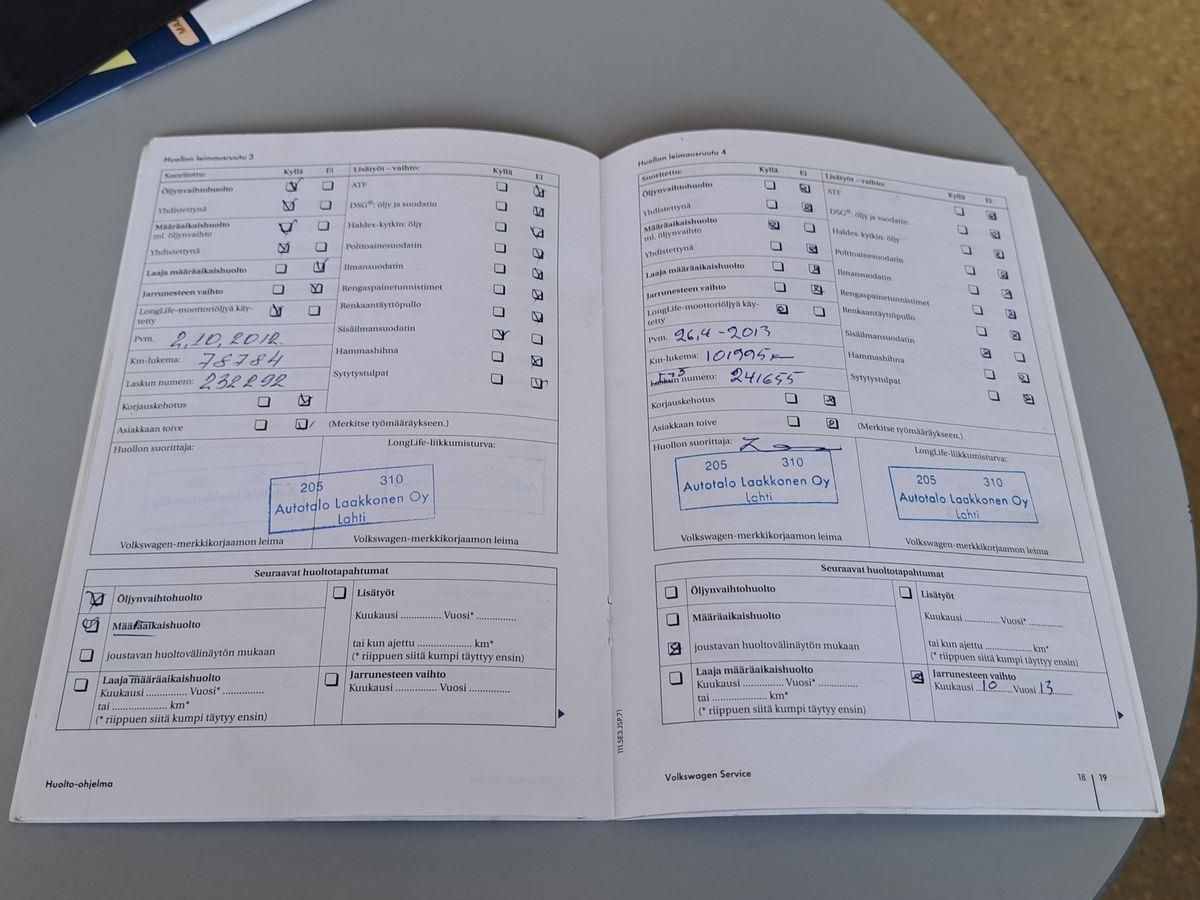 MA
Huollon leimausruutu 3
Suoritettu: Kyllä Ei
Öljynvaihtohuolto
Yhdistettynä
Määräaikaishuolto
ml. öljynvaihto
Yhdistettynä
Laaja määräaikaishuolto
Jarrunesteen vaihto
LongLife-moottoriöljyä käy-
tetty
Pvm. 2.10.2012.
Km-lukema: 78784
Laskun numero: 232292
Korjauskehotus
Asiakkaan toive
Lisätyöt – vaihto: Kyllä Ei
ATF
DSG®: öljy ja suodatin
Haldex-kytkin: öljy
Polttoainesuodatin
Ilmansuodatin
Rengaspainetunnistimet
Renkaantäyttöpullo
Sisäilmansuodatin
Hammashihna
Sytytystulpat
(Merkitse työmääräykseen.)
Huollon suorittaja:
LongLife-liikkumisturva:
205 310
Autotalo Laakkonen Oy
Lahti
Volkswagen-merkkikorjaamon leima
Volkswagen-merkkikorjaamon leima
Seuraavat huoltotapahtumat
Öljynvaihtohuolto
Määräaikaishuolto
joustavan huoltovälinäytön mukaan
Laaja määräaikaishuolto
Kuukausi .............. Vuosi* ..............
tai .................... km*
(* riippuen siitä kumpi täytyy ensin)
Lisätyöt
Kuukausi .............. Vuosi* ..............
tai kun ajettu .................... km*
(* riippuen siitä kumpi täyttyy ensin)
Jarrunesteen vaihto
Kuukausi .............. Vuosi ..............
Huolto-ohjelma
Huollon leimausruutu 4
Suoritettu: Kyllä Ei
Öljynvaihtohuolto
Yhdistettynä
Määräaikaishuolto
ml. öljynvaihto
Yhdistettynä
Laaja määräaikaishuolto
Jarrunesteen vaihto
LongLife-moottoriöljyä käy-
tetty
Pvm. 26.4-2013
Km-lukema: 101995 km
Laskun numero: 241655
Korjauskehotus
Asiakkaan toive
Lisätyöt – vaihto: Kyllä Ei
ATF
DSG®: öljy ja suodatin
Haldex-kytkin: öljy
Polttoainesuodatin
Ilmansuodatin
Rengaspainetunnistimet
Renkaantäyttöpullo
Sisäilmansuodatin
Hammashihna
Sytytystulpat
(Merkitse työmääräykseen.)
Huollon suorittaja:
LongLife-liikkumisturva:
205 310
Autotalo Laakkonen Oy
Lahti
205 310
Autotalo Laakkonen Oy
Lahti
Volkswagen-merkkikorjaamon leima
Volkswagen-merkkikorjaamon leima
Seuraavat huoltotapahtumat
Öljynvaihtohuolto
Määräaikaishuolto
joustavan huoltovälinäytön mukaan
Laaja määräaikaishuolto
Kuukausi .............. Vuosi* ..............
tai .................... km*
(* riippuen siitä kumpi täytyy ensin)
Lisätyöt
Kuukausi .............. Vuosi* ..............
tai kun ajettu .................... km*
(* riippuen siitä kumpi täyttyy ensin)
Jarrunesteen vaihto
Kuukausi 10 Vuosi 13
111.5E3.JSP.71
Volkswagen Service
18 | 19